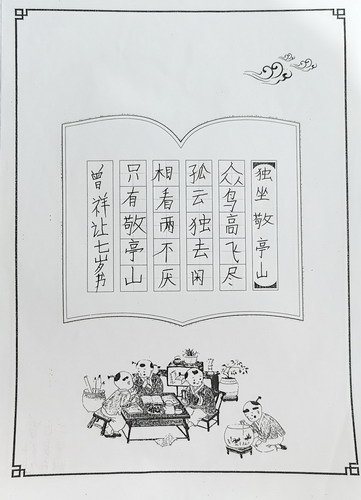 独坐敬亭山
众鸟高飞尽
孤云独去闲
相看两不厌
只有敬亭山
曾祥让七岁书